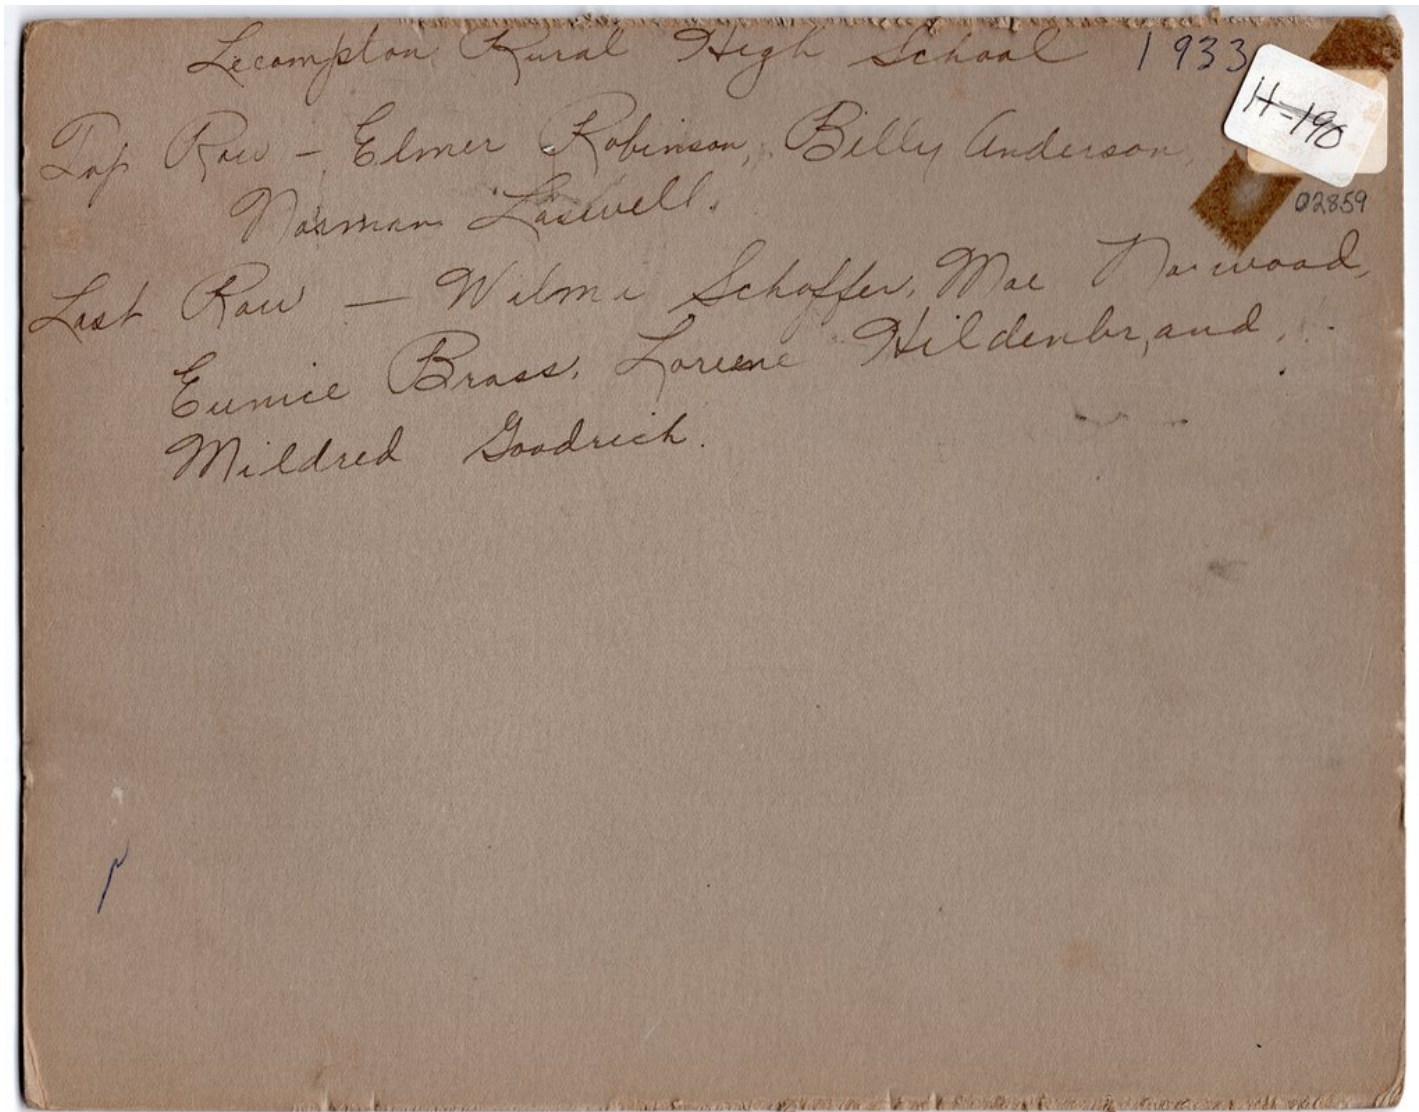 Lecompton Rural High School 1933
H-190
Top Row - Elmer Robinson, Billy Anderson,
02859
Norman Lasewell.
Last Row — Wilma Schaffer, Mae Norwood,
Eunice Brass, Loreene Hildenbrand,
Mildred Goodrich.